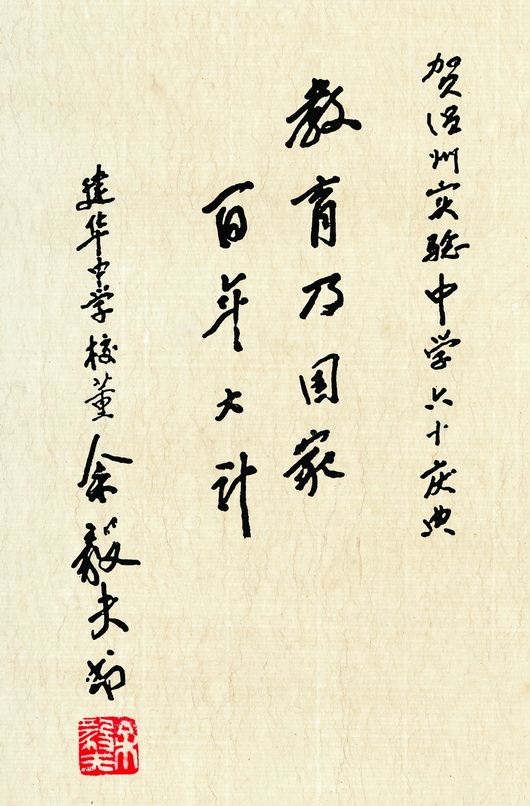 贺温州实验中学六十庆典
教育乃国家
百年大计
建华中学校董余毅夫
余毅夫